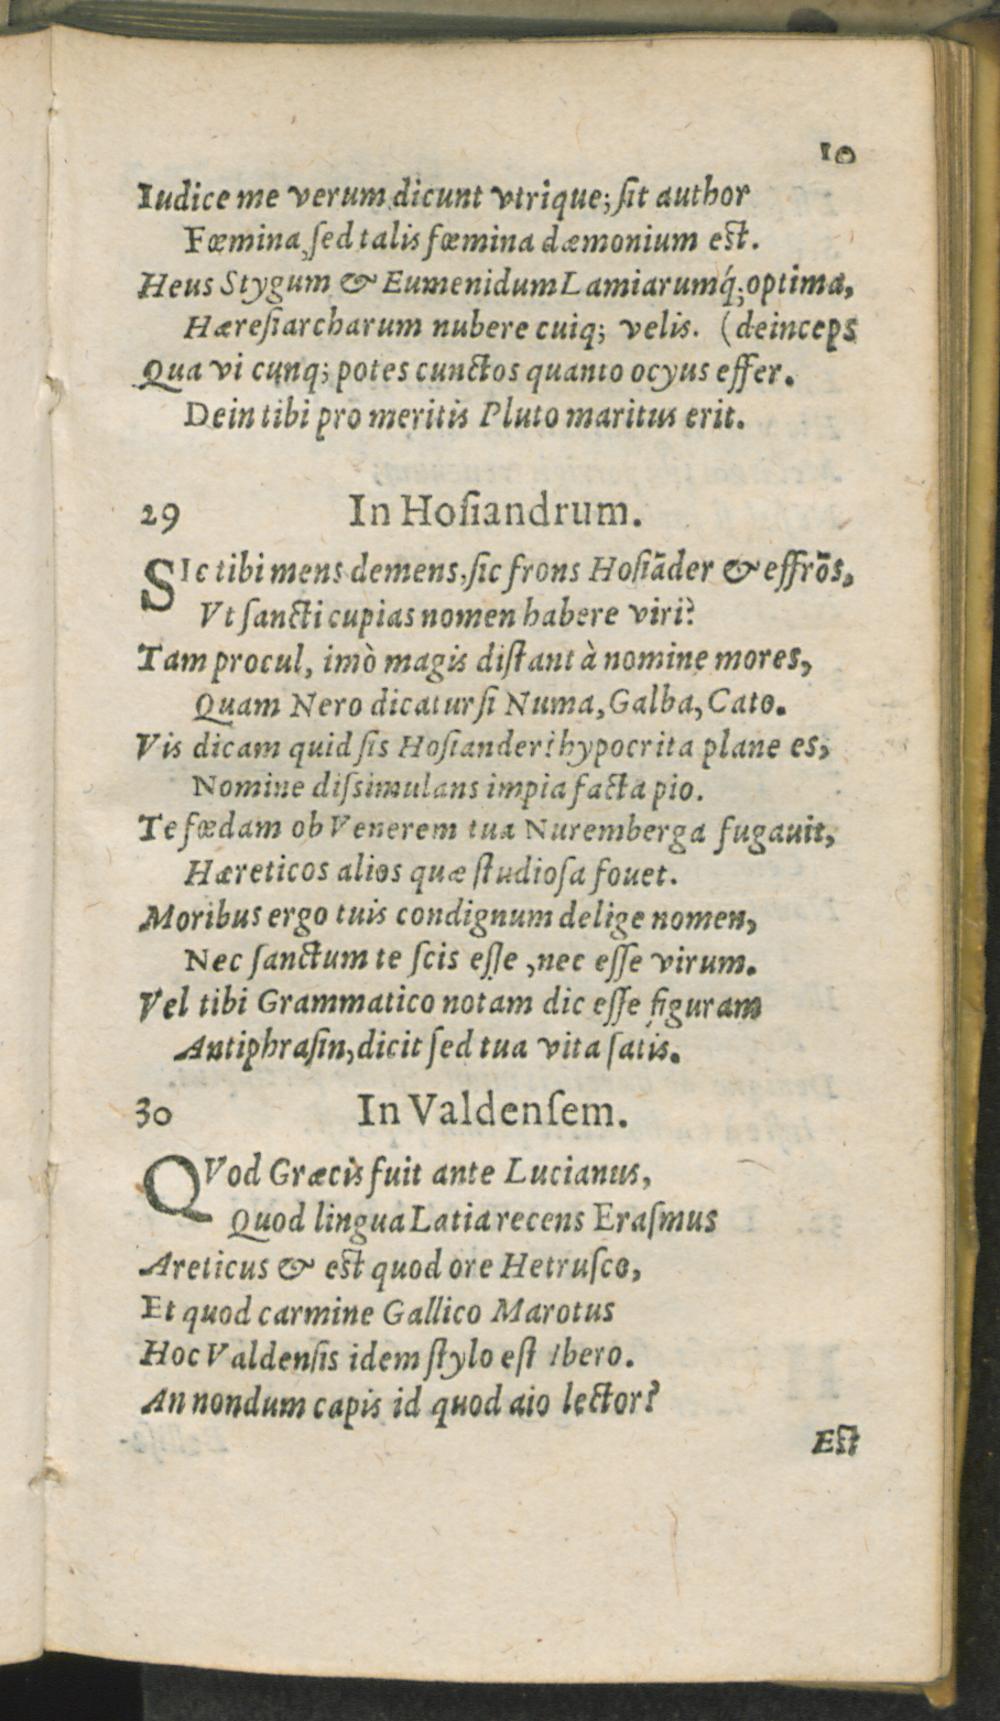 10
Iudice me verum dicunt vtrique; ſit author
Fœmina, ſed talis fœmina dæmonium eſt.
Heus Stygum & Eumenidum Lamiarumq́; optima,
Hæreſiarcharum nubere cuiq; velis. (deinceps
Qua vi cunq; potes cunctos quanto ocyus effer.
Dein tibi pro meritis Pluto maritus erit.
29 In Hoſiandrum.
SIc tibi mens demens, ſic frons Hoſiãder & effrõs,
Vt ſancti cupias nomen habere viri?
Tam procul, imò magis diſtant à nomine mores,
Quam Nero dicatur ſi Numa, Galba, Cato.
Vis dicam quid ſis Hoſiander? hypocrita plane es,
Nomine diſsimulans impia facta pio.
Te fœdam ob Venerem tua Nuremberga fugauit,
Hæreticos alios quæ ſtudioſa fouet.
Moribus ergo tuis condignum delige nomen,
Nec ſanctum te ſcis eſſe, nec eſſe virum.
Vel tibi Grammatico notam dic eſſe figuram
Antiphraſin, dicit ſed tua vita ſatis.
30 In Valdenſem.
QVod Græcis fuit ante Lucianus,
Quod lingua Latia recens Eraſmus
Areticus & eſt quod ore Hetruſco,
Et quod carmine Gallico Marotus
Hoc Valdenſis idem ſtylo eſt Ibero.
An nondum capis id quod aio lector?
Eſt